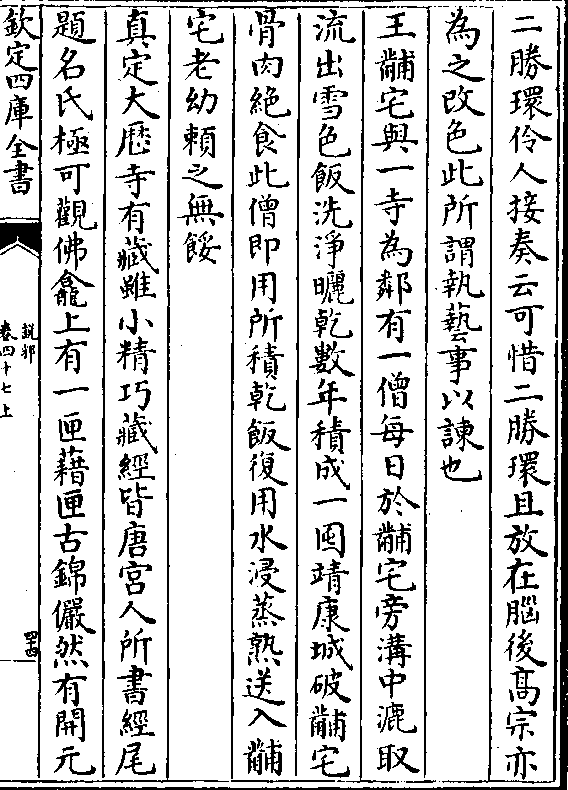 二勝環伶人接奏云可惜二勝環且放在腦後髙宗亦
為之改色此所謂執藝事以諫也
王黼宅與一寺為鄰有一僧每日於黼宅旁溝中漉取
流出雪色飯洗淨曬乾數年積成一囤靖康城破黼宅
骨肉絶食此僧即用所積乾飯復用水浸蒸熟送入黼
宅老幼頼之無餒
真定大厯寺有藏雖小精巧藏經皆唐宫人所書經尾
題名氏極可觀佛龕上有一匣藉匣古錦儼然有開元
欽定四庫全書
說郛
卷四十七上
四十四